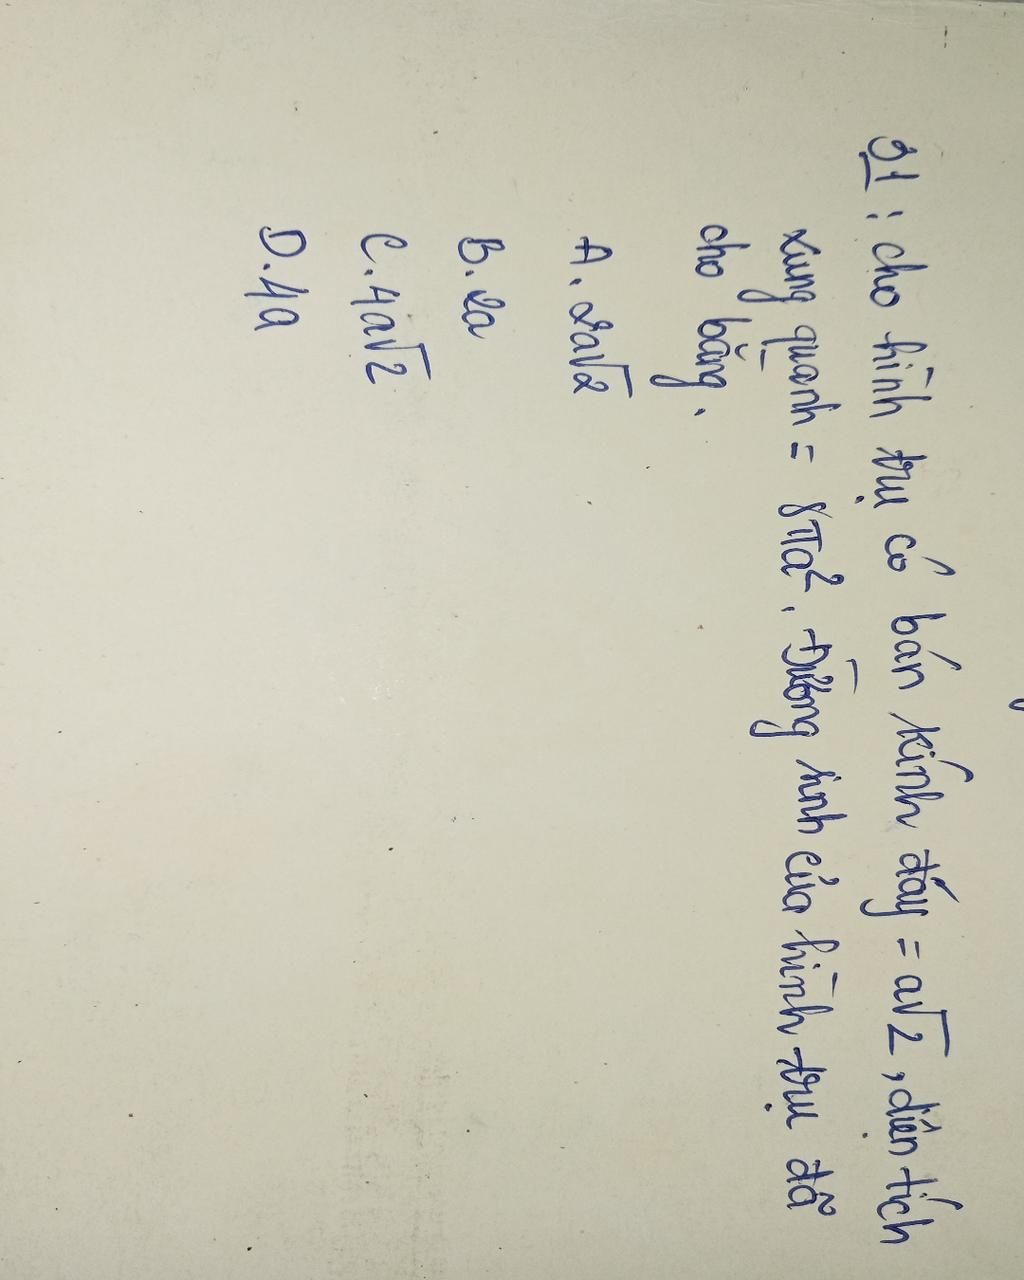 31: cho hình trụ có bán kính đáy = a√2, diện tích
xung quanh = 8πa². Đường sinh của hình trụ đã
cho bằng.
A. 2a√2
B. 2a
C. 4a√2
D. 4a